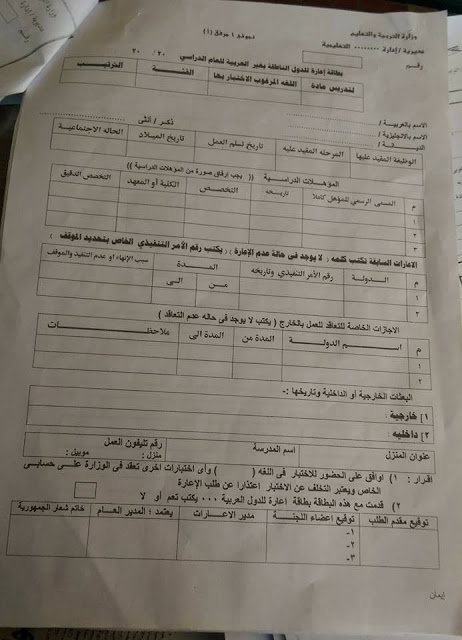 وزارة التربية والتعليم
نموذج ١ مرفق (١)
مديرية / إدارة ........ التعليمية
رقم
بطاقة إعارة للدول الناطقة بغير العربية للعام الدراسي ٢٠ / ٢٠
لتدريس مادة
اللغه المرغوب الاختبار بها
الفئـة
الترتيب
الاسم بالعربية /
ذكر / أنثى
الاسم بالانجليزية /
الوظيفة المقيد عليها
المرحله المقيد عليه
تاريخ تسلم العمل
تاريخ الميلاد
الحاله الاجتماعية
المؤهلات الدراسية (( يجب إرفاق صورة من المؤهلات الدراسية ))
م
المسمى الرسمي للمؤهل كاملا
تاريخه
التخصص
الكلية أو المعهد
التخصص الدقيق
١
٢
٣
الاعارات السابقة تكتب كلمه ( لا يوجد فى حالة عدم الإعارة ) ( يكتب رقم الأمر التنفيذي الخاص بتحديد الموقف
م
الدولة
رقم الأمر التنفيذي وتاريخه
المدة
من
الى
سبب الإنهاء او عدم التنفيذ والموقف
١
٢
الاجازات الخاصة للتعاقد للعمل بالخارج ( يكتب لا يوجد فى حاله عدم التعاقد )
م
اسم الدولة
المدة من
المدة الى
ملاحظات
١
٢
البعثات الخارجية أو الداخلية وتاريخها :-
١] خارجية :
٢] داخليه :
عنوان المنزل
اسم المدرسة
رقم تليفون العمل
منزل :
موبيل :
اقرار : ١) اوافق على الحضور للاختبار فى اللغه ( ) وأى اختبارات اخرى تعقد فى الوزارة على حسابى
الخاص ويعتبر التخلف عن الاختبار اعتذارا عن طلب الإعارة
٢) قدمت مع هذه البطاقة بطاقة إعارة للدول العربية ... يكتب نعم أو لا
توقيع مقدم الطلب
توقيع اعضاء اللجنة
مدير الاعارات
يعتمد ؛ المدير العام
خاتم شعار الجمهورية
١-
٢-
٣-
إيمان